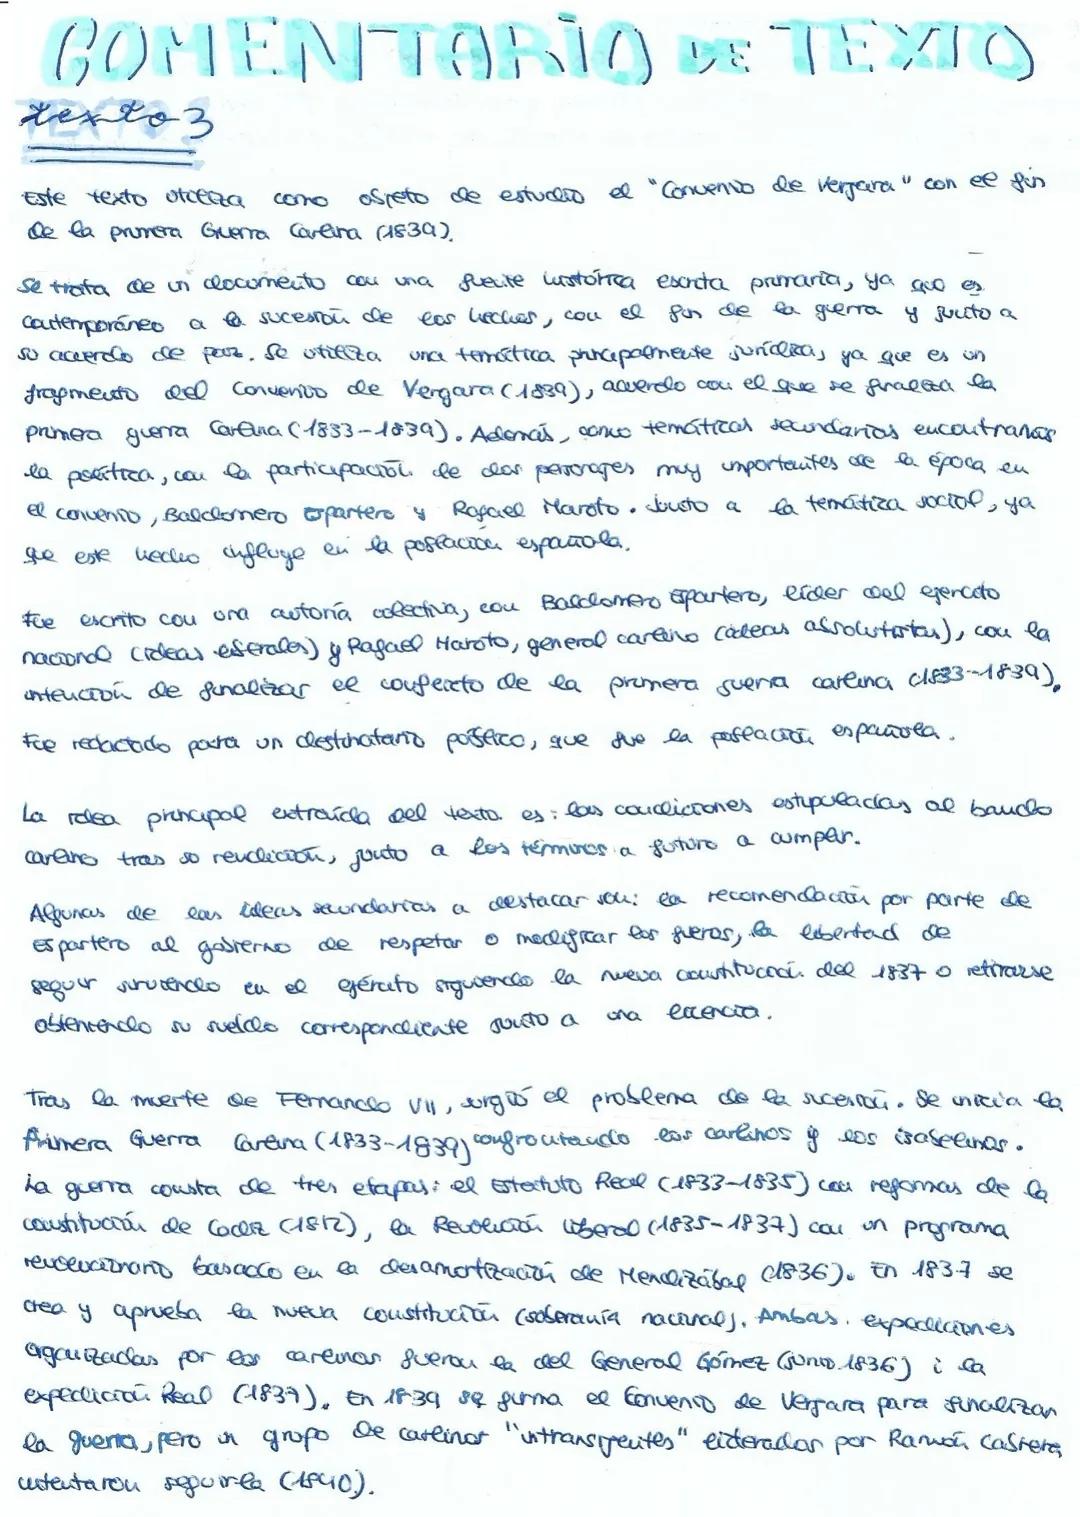 COMENTARIO DE TEXTO
texto 3
Este texto utiliza como objeto de estudio el "Convenio de Vergara" con el fin
de la primera Guerra Carlina (1839).
Se trata de un documento con una fuente histórica escrita primaria, ya que es
contemporáneo a la sucesión de los hechos, con el fin de la guerra y junto a
su acuerdo de paz. Se utiliza una temática principalmente jurídica, ya que es un
fragmento del Convenio de Vergara (1839), acuerdo con el que se finaliza la
primera guerra Carlina (1833-1839). Además, como temáticas secundarias encontramos
la política, con la participación de dos personajes muy importantes de la época en
el convenio, Baldomero Espartero y Rafael Maroto. Justo a la temática social, ya
que este hecho influye en la población española.
Fue escrito con una autoría colectiva, con Baldomero Espartero, líder del ejercito
nacional (ideas liberales) y Rafael Maroto, general carlino (ideas absolutistas), con la
intención de finalizar el conflicto de la primera guerra carlina (1833-1839).
Fue redactado para un destinatario público, que fue la población española.
La idea principal extraída del texto es: las condiciones estipuladas al bando
carlino tras su rendición, junto a los términos a futuro a cumplir.
Algunas de las ideas secundarias a destacar son: la recomendación por parte de
Espartero al gobierno de respetar o modificar los fueros, la libertad de
seguir sirviendo en el ejército siguiendo la nueva constitución del 1837 o retirarse
obteniendo su sueldo correspondiente junto a una licencia.
Tras la muerte de Fernando VII, surgió el problema de la sucesión. Se inicia la
Primera Guerra Carlina (1833-1839) confrontando los carlinos y los isabelinos.
La guerra consta de tres etapas: el Estatuto Real (1833-1835) con reformas de la
constitución de Cádiz (1812), la Revolución liberal (1835-1837) con un programa
revolucionario basado en la desamortización de Mendizábal (1836). En 1837 se
crea y aprueba la nueva constitución (soberanía nacional). Ambas expediciones
organizadas por los carlinos fueron la del General Gómez (junio 1836) i la
expedición Real (1837). En 1839 se firma el Convenio de Vergara para finalizar
la guerra, pero un grupo de carlinos "intransigentes" liderados por Ramón Cabrera
intentaron seguirla (1840).